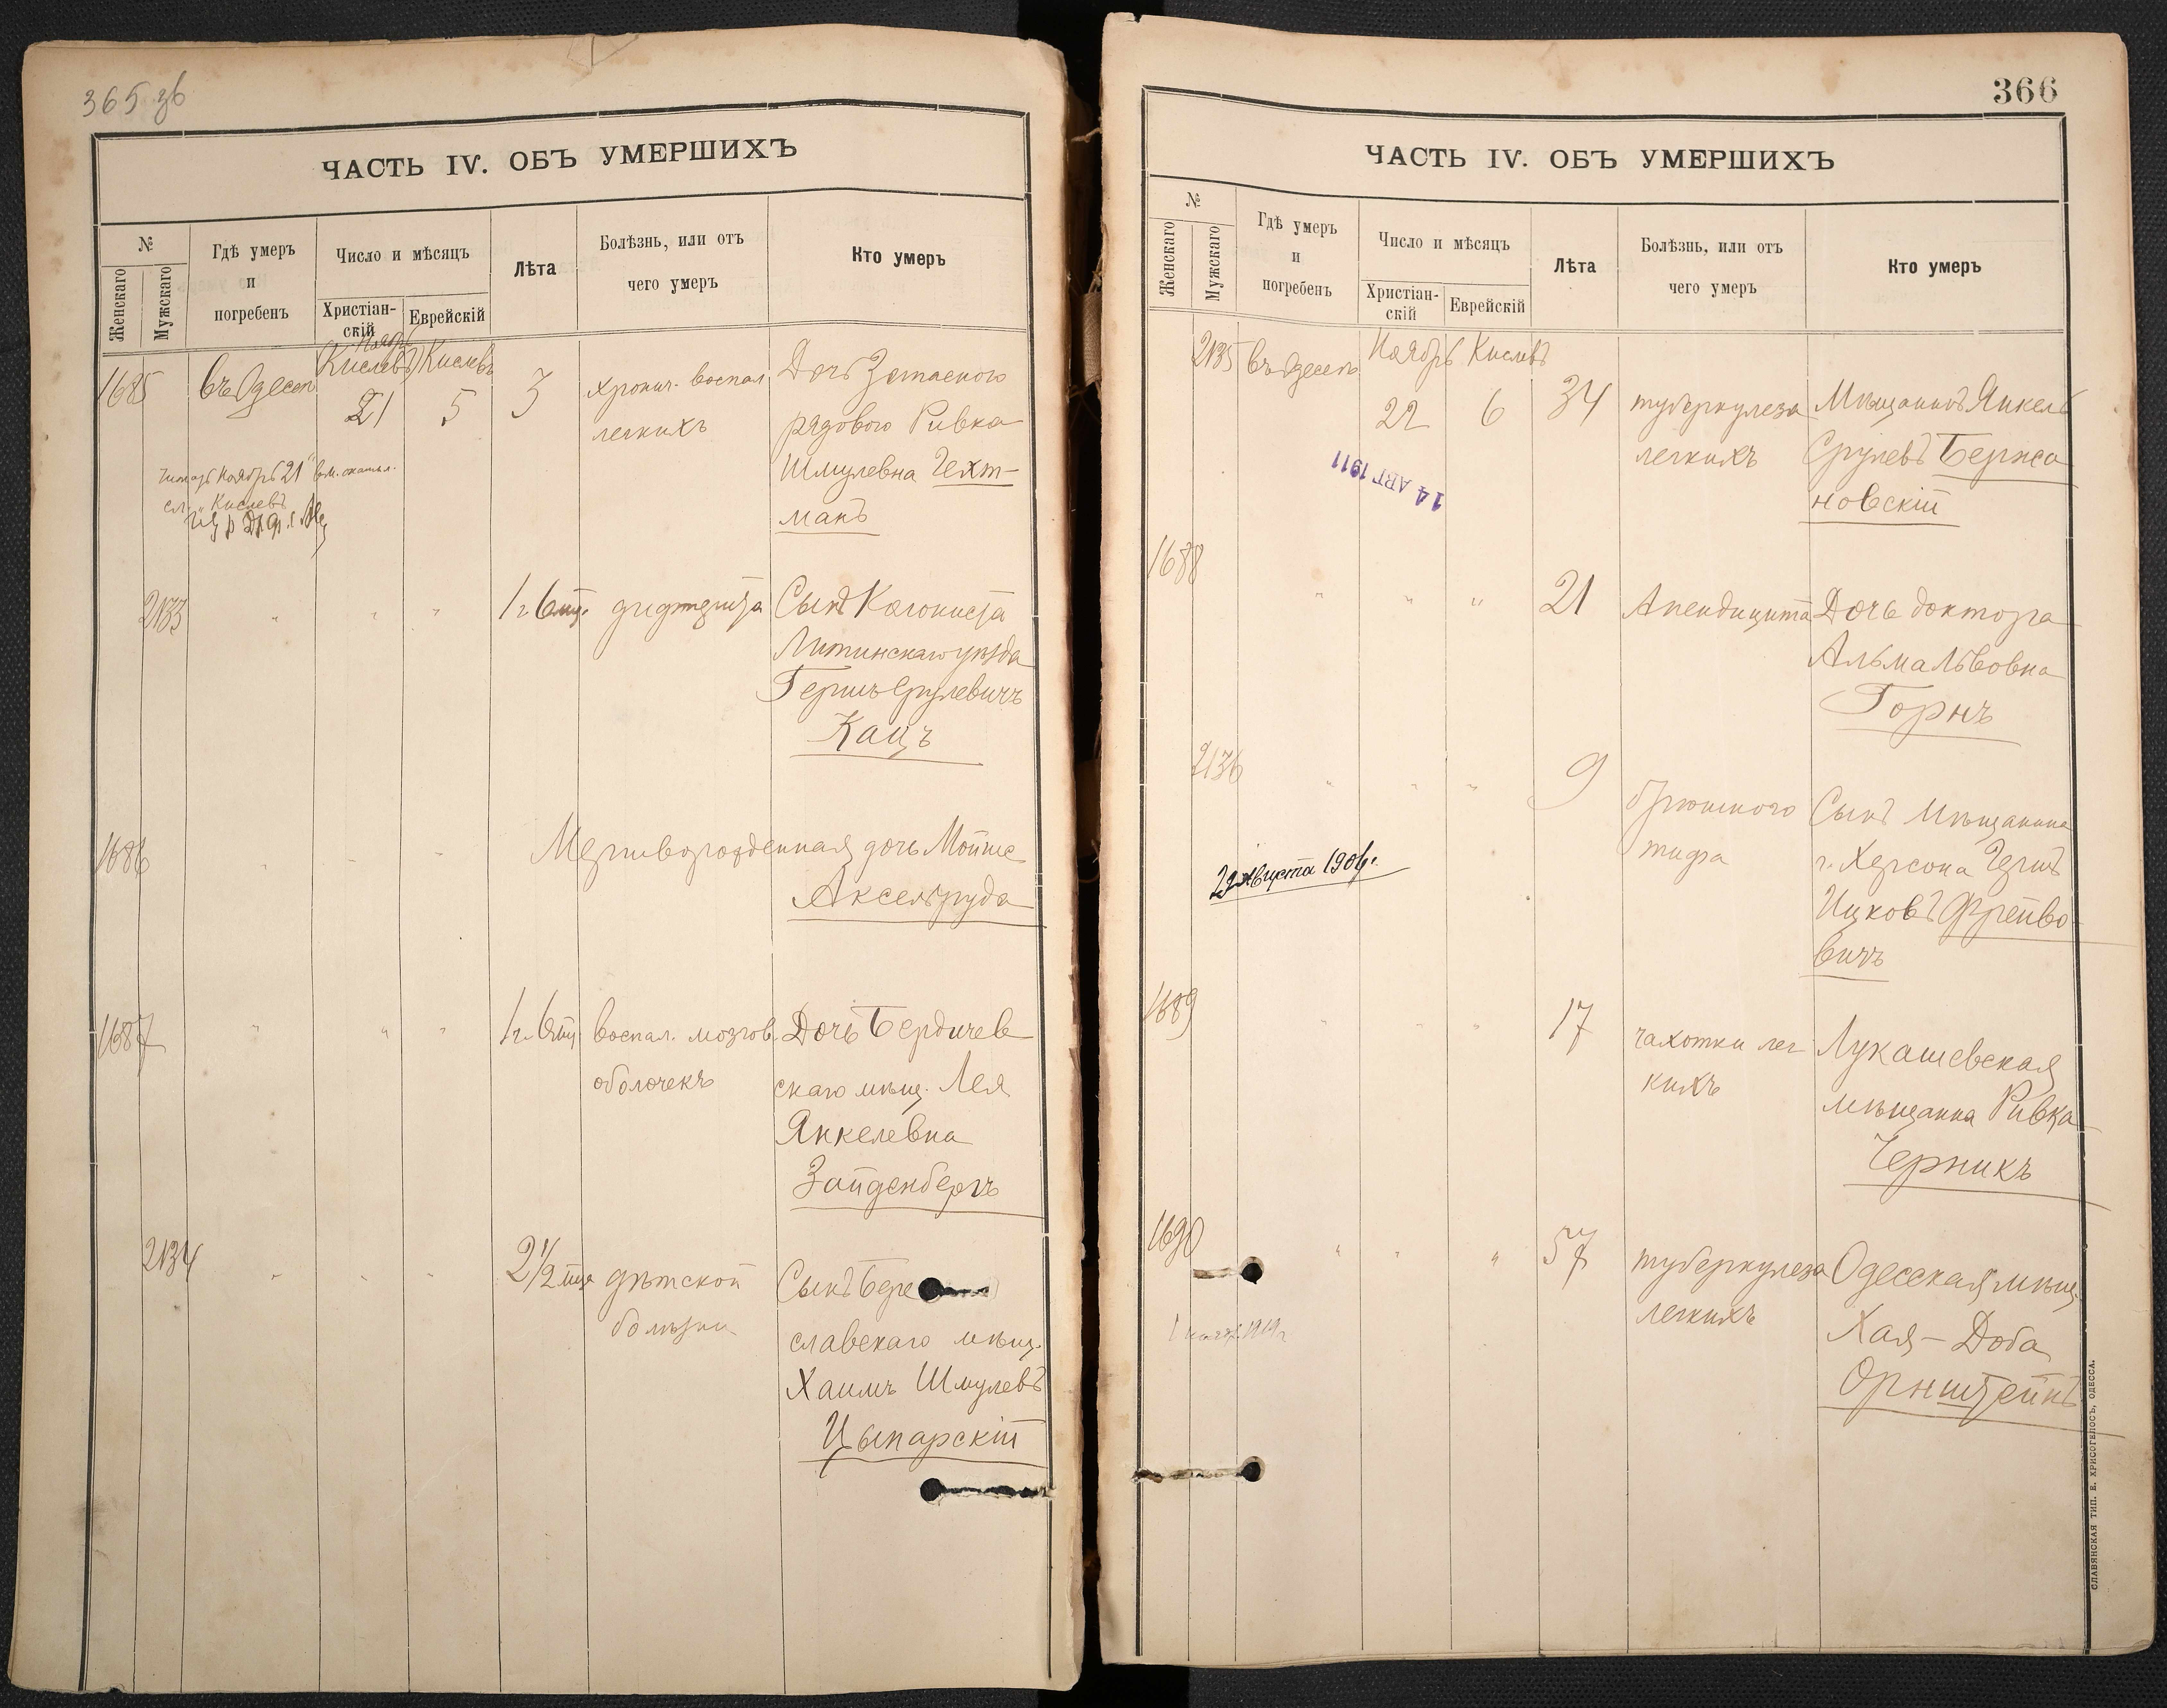 365 зв
ЧАСТЬ IV. ОБЪ УМЕРШИХЪ
№
Женскаго
Мужскаго
Гдѣ умеръ
и
погребенъ
Число и мѣсяцъ
Христіан-
скій
Еврейскій
Лѣта
Болѣзнь, или отъ
чего умеръ
Кто умеръ
1685
въ Одессѣ
Ноябрь
Кислевъ
Кислевъ
21
5
3
хронич. воспал
легкихъ
Дочь
рядового Ривка
Шмулевна Гехт-
манъ
Ноябрь 21
Кислевъ
2133
" " "
1 г. 6 мц.
Сынъ Колониста
Литинскаго уѣзда
Гершъ Срулевичъ
Кацъ
1686
" " "
Мертворожденная дочь Мойше
Аксельруда
1687
" " "
1 г. 6 мц
воспал. мозгов.
оболочекъ
Дочь Бердичев
скаго мѣщ. Лея
Янкелевна
Зайденбергъ
2134
" " "
2 1/2 мца
дѣтской
болѣзни
Сынъ Бере
славскаго мѣщ.
Хаимъ Шмулевъ
Цыпарскій
366
ЧАСТЬ IV. ОБЪ УМЕРШИХЪ
№
Женскаго
Мужскаго
Гдѣ умеръ
и
погребенъ
Число и мѣсяцъ
Христіан-
скій
Еврейскій
Лѣта
Болѣзнь, или отъ
чего умеръ
Кто умеръ
2135
въ Одессѣ
Ноябрь
Кислевъ
22
6
34
туберкулеза
легкихъ
Мѣщанинъ Янкель
Срулевъ Бержа
новскій
14 АВГ 1911
1688
" " "
21
Апендицита
Дочь доктора
Альма Львовна
Горнъ
2136
" " "
9
брюшного
тифа
Сынъ мѣщанина
г. Херсона Гершъ
Ицковъ Фрейво
вичъ
29 Августа 190
1689
" " "
17
чахотки лег
кихъ
Лукашевская
мѣщанка Ривка
Черникъ
1690
" " "
57
туберкулеза
легкихъ
Одесская мѣщ.
Хая-Доба
Орнштейнъ
1919 г
СЛАВЯНСКАЯ ТИП. Е. ХРИСОГЕЛОСЪ, ОДЕССА.